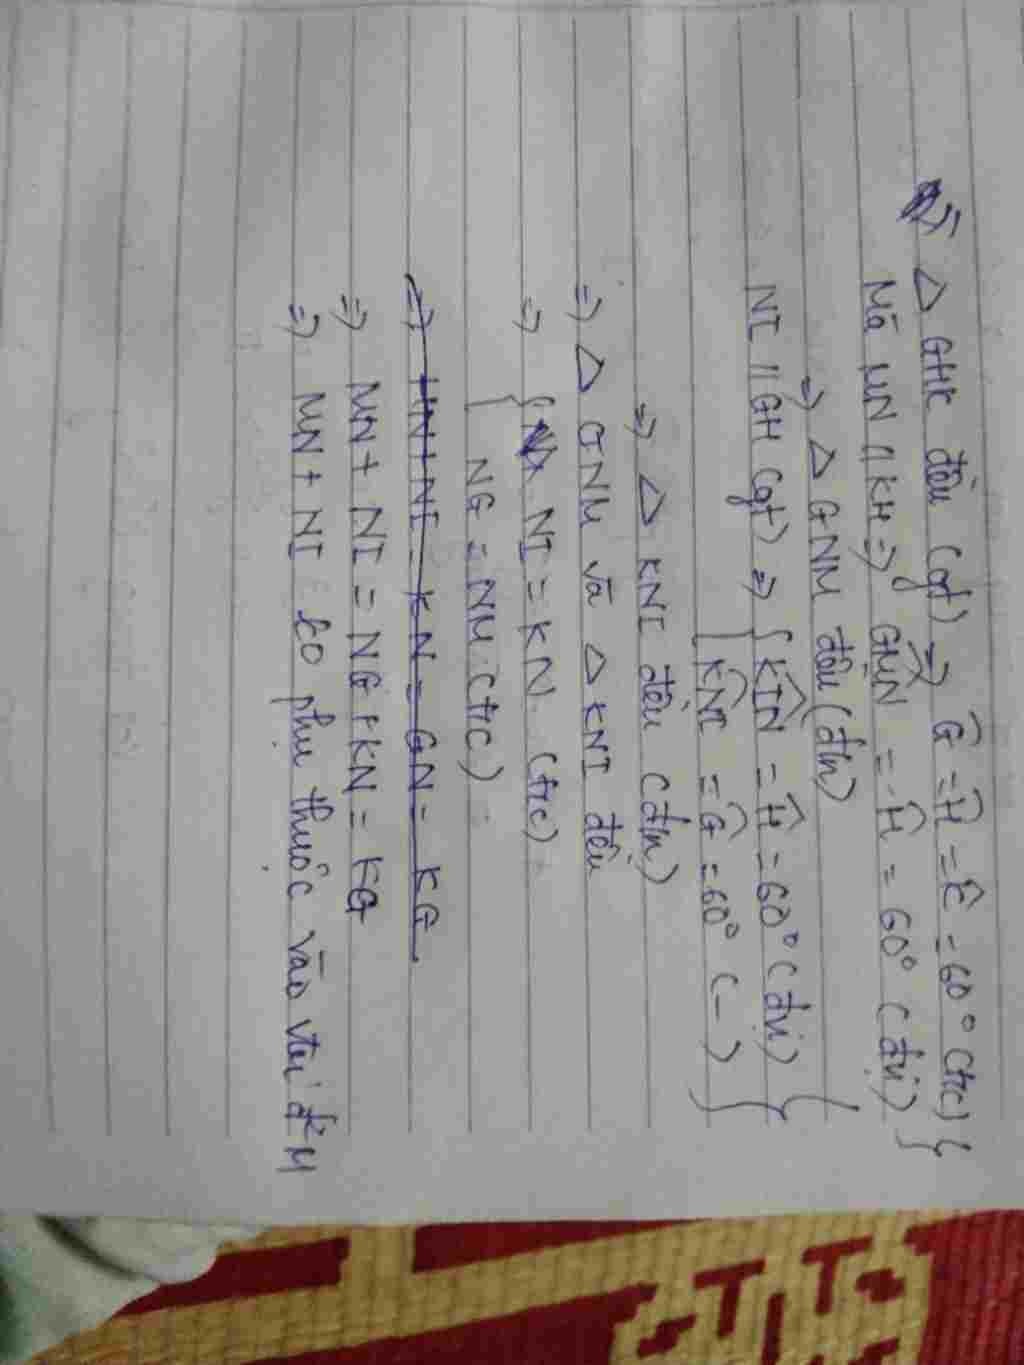 △ GHK đều (gt) => Ĝ = Ĥ = K̂ = 60° (t/c) }
Mà MN // KH => GM̂N = Ĥ = 60° (đvị) }
=> △ GNM đều (đ/n)
NI // GH (gt) => { KÎN = Ĥ = 60° (đvị) }
{ KN̂I = Ĝ = 60° ( – ) }
=> △ KNI đều (đ/n)
=> △ GNM và △ KNI đều
=> { NI = KN (t/c)
{ NG = NM (t/c)
=> MN + NI = NG + KN = KG
=> MN + NI ko phụ thuộc vào vtrí đ' M